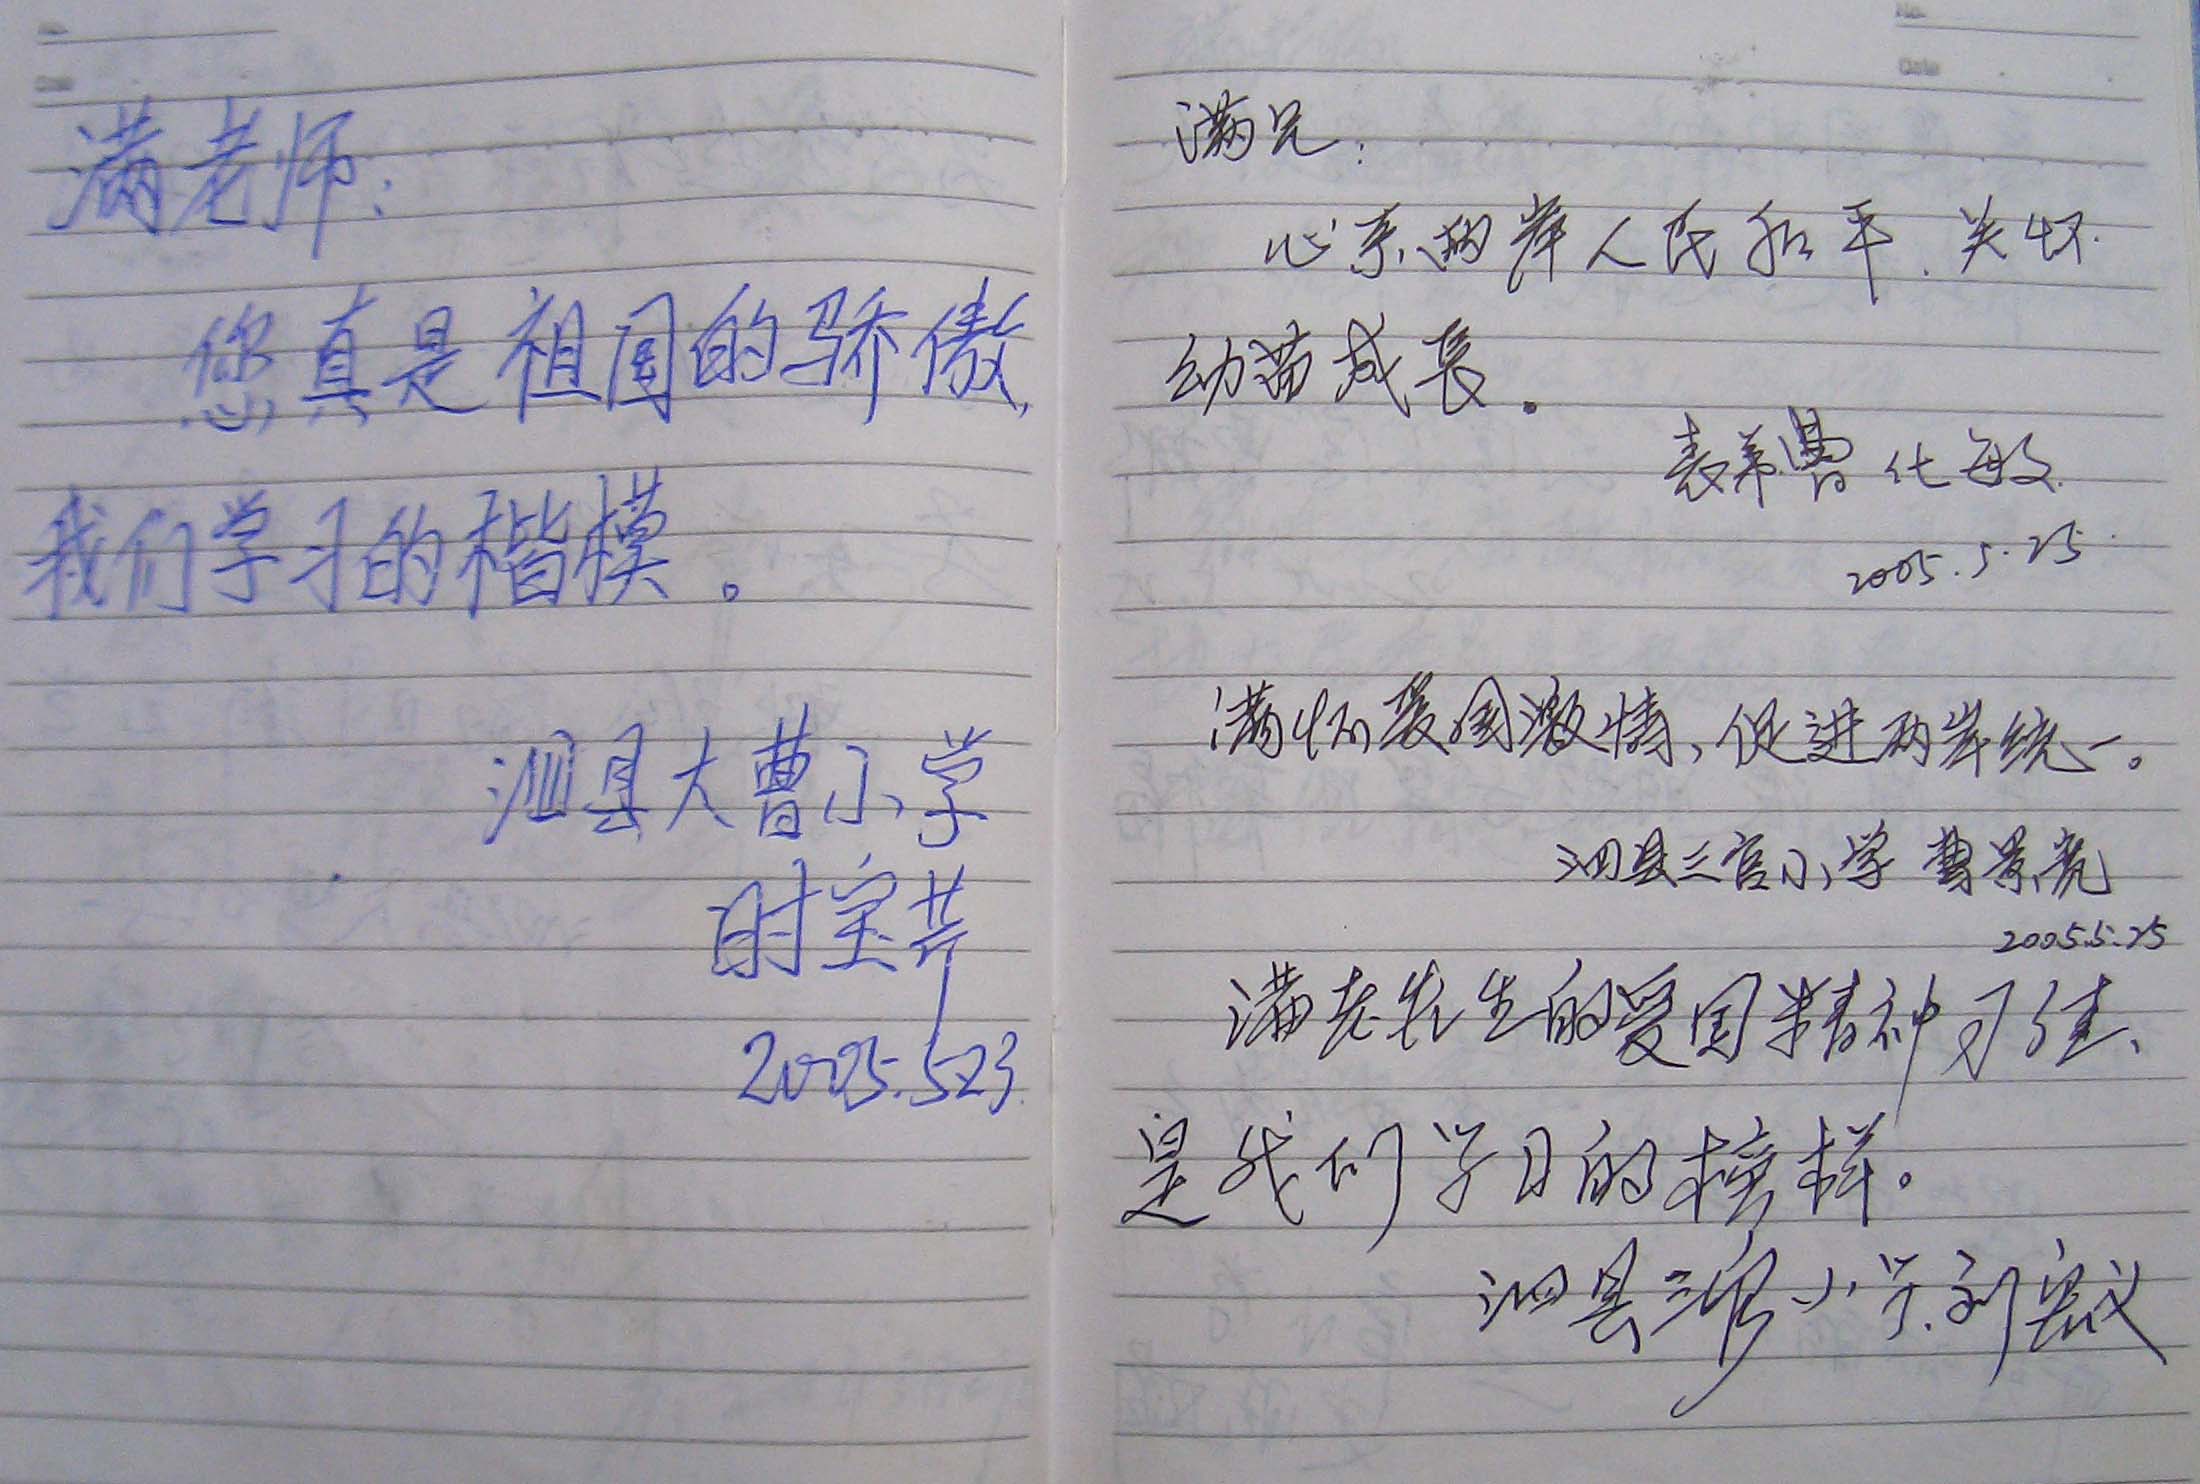 满老师：
您真是祖国的骄傲，
我们学习的楷模。
泗县大曹小学
时宝芹
2005.5.23
No.
Date
满兄：
心系两岸人民和平、关怀
幼苗成长。
表弟曹化敏
2005.5.25
满怀爱国激情，促进两岸统一。
泗县三官小学 曹景亮
2005.5.25
满老先生的爱国精神可佳、
是我们学习的榜样。
泗县三官小学 刘宏义